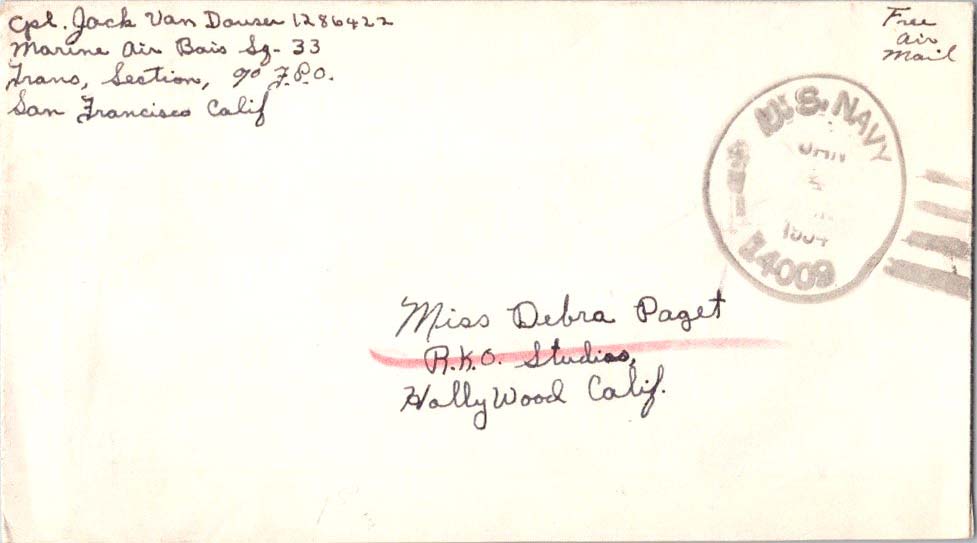 Cpl. Jack Van Douser 1286422
Marine Air Bais Sq- 33
Trans, Section, % F.P.O.
San Francisco Calif
Free
Air
Mail
U.S. NAVY
JAN
5
1954
14009
Miss Debra Paget
R.K.O. Studios,
HollyWood Calif.